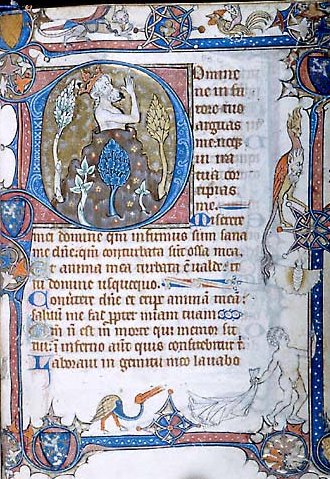 Domine
ne in fu
rore tuo
arguas
me: neqʒ
in ira
tua cor
ripias
me. Miserere
mei domine qm̄ infirmus sum sana
me dn̄e: qm̄ conturbata sūt ossa mea.
Et anima mea turbata ē valde: et
tu domine usquequo.
Conūtere dn̄e et eripe animā meā:
saluū me fac ꝓpter miam̄ tuam
Qm̄ n̄ est in morte qui memor sit
tui: in inferno autē quis confitebitur t̄
Laboraui in gemitu meo lauabo